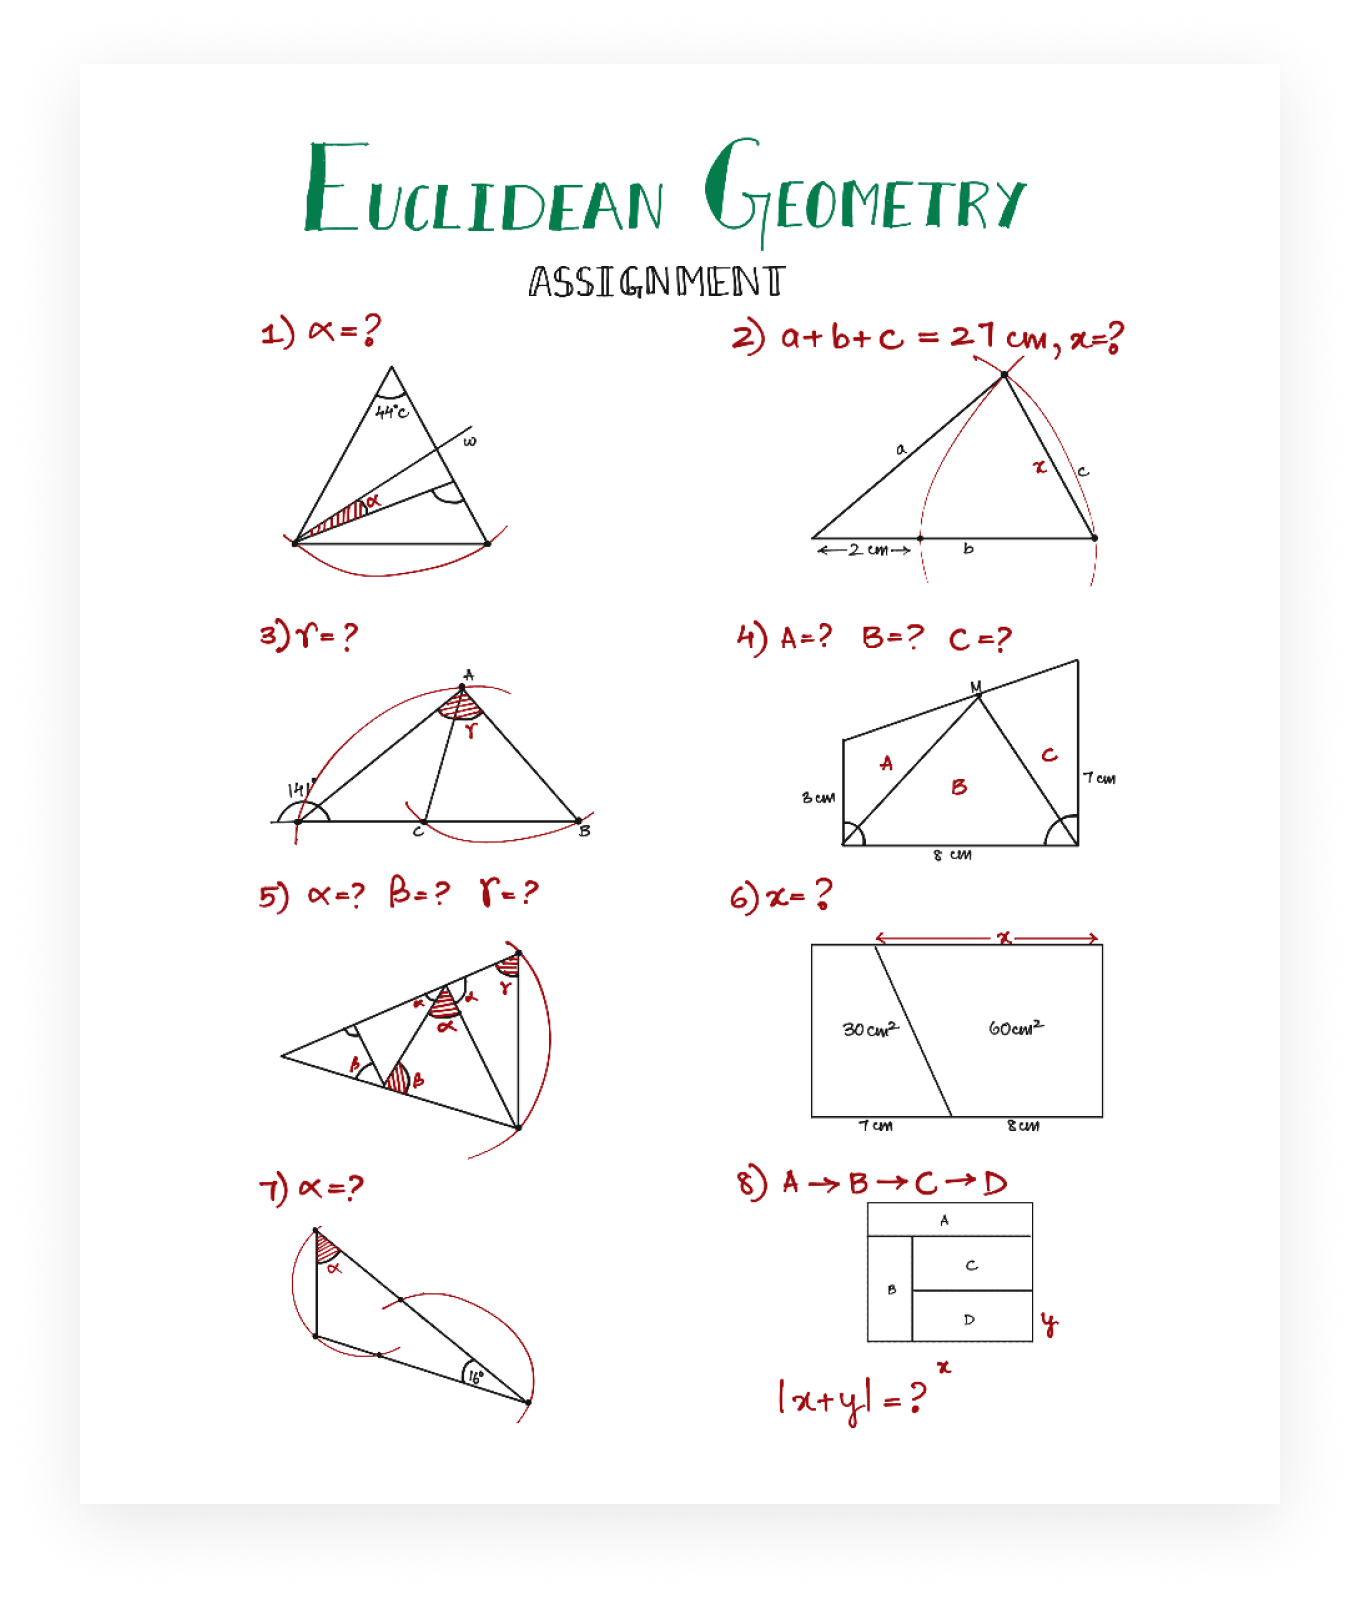 EUCLIDEAN GEOMETRY
ASSIGNMENT
1) α=?
44°C
ω
α
2) a+b+c = 27 cm, x=?
a
x
c
2 cm
b
3) r=?
A
r
141°
C
B
4) A=? B=? C=?
M
A
B
C
3cm
7cm
8 cm
5) α=? β=? r=?
r
α
α
α
β
β
6) x=?
x
30cm²
60cm²
7cm
8cm
7) α=?
α
16°
8) A→B→C→D
A
B
C
D
y
x
|x+y|=?